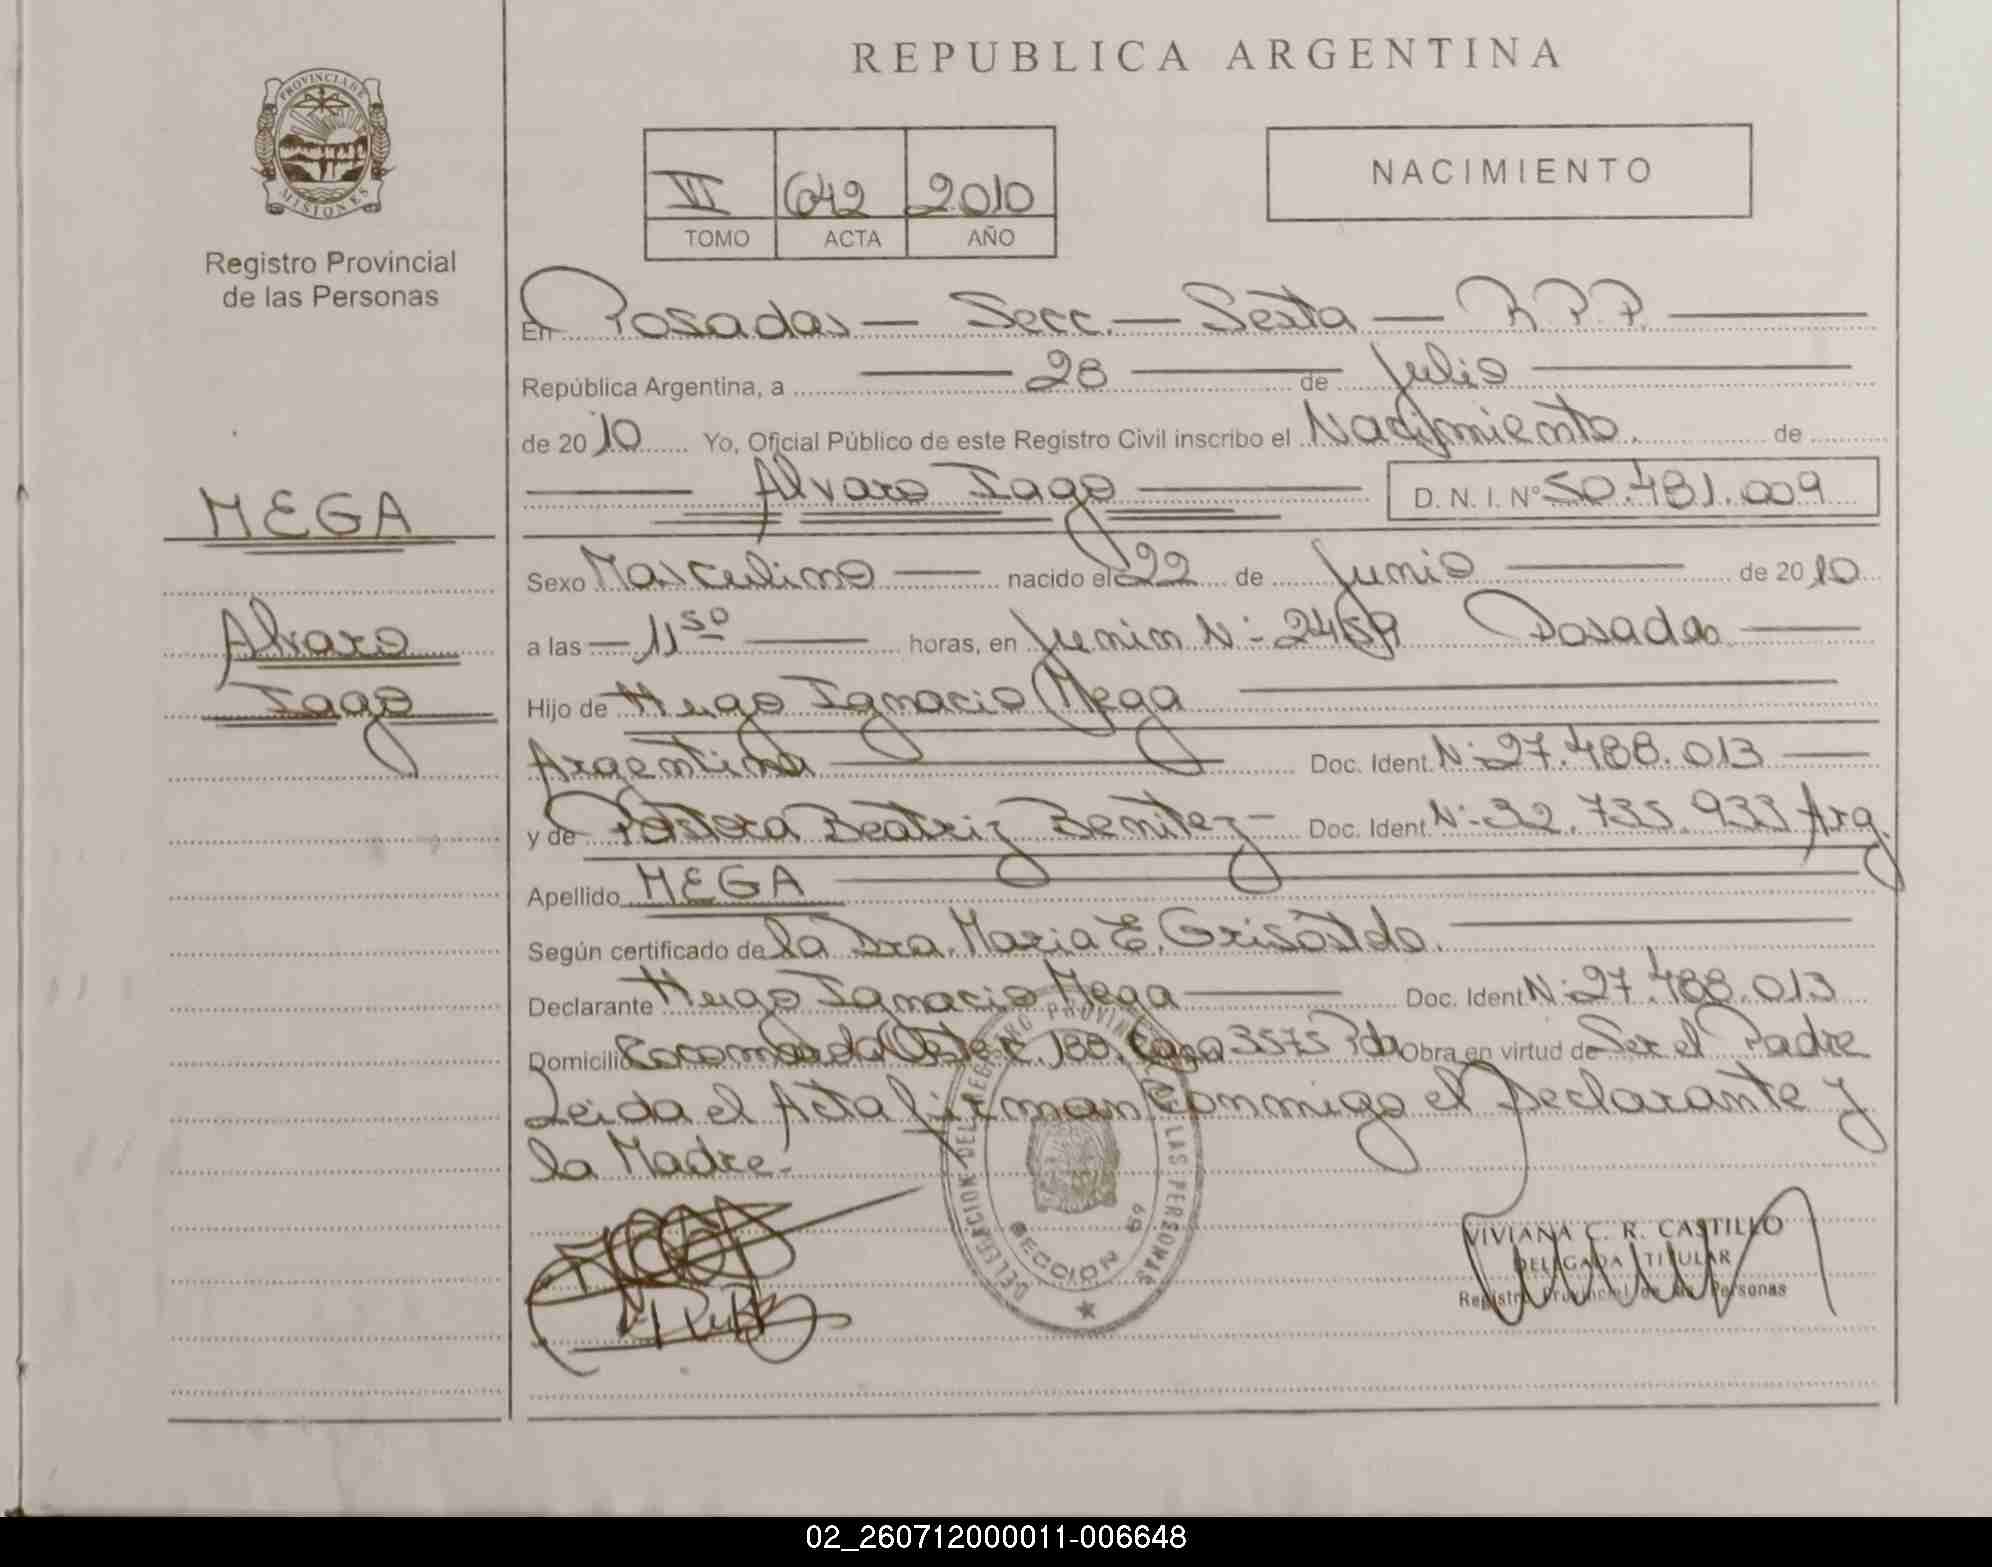 REPUBLICA ARGENTINA
PROVINCIA DE MISIONES
Registro Provincial
de las Personas
VI 642 2010
TOMO ACTA AÑO
NACIMIENTO
En Posadas — Secc. — Sexta — R.P.P.
República Argentina, a 28 de Julio
de 2010 Yo, Oficial Público de este Registro Civil inscribo el Nacimiento. de
Alvaro Iago D. N. I. Nº 50.481.009
MEGA
Alvaro
Iago
Sexo Masculino nacido el 22 de Junio de 2010
a las 11 50 horas, en Junin Nº 2469 Posadas
Hijo de Hugo Ignacio Mega
Argentina Doc. Ident. Nº 27.488.013
y de Pastora Beatriz Benitez Doc. Ident. Nº 32.735.933 Arg.
Apellido MEGA
Según certificado de la Dra. Maria E. Grisoldo.
Declarante Hugo Ignacio Mega Doc. Ident Nº 27.488.013
Domicilio 133. Casa 3575 Pdas Obra en virtud de Ser el Padre
Leida el Acta firman Conmigo el Declarante y
la Madre.-
DELEGACION DEL REGISTRO PROVINCIAL DE LAS PERSONAS
SECCION 6ª
VIVIANA C. R. CASTILLO
DELEGADA TITULAR
Registro Provincial de las Personas
02_260712000011-006648